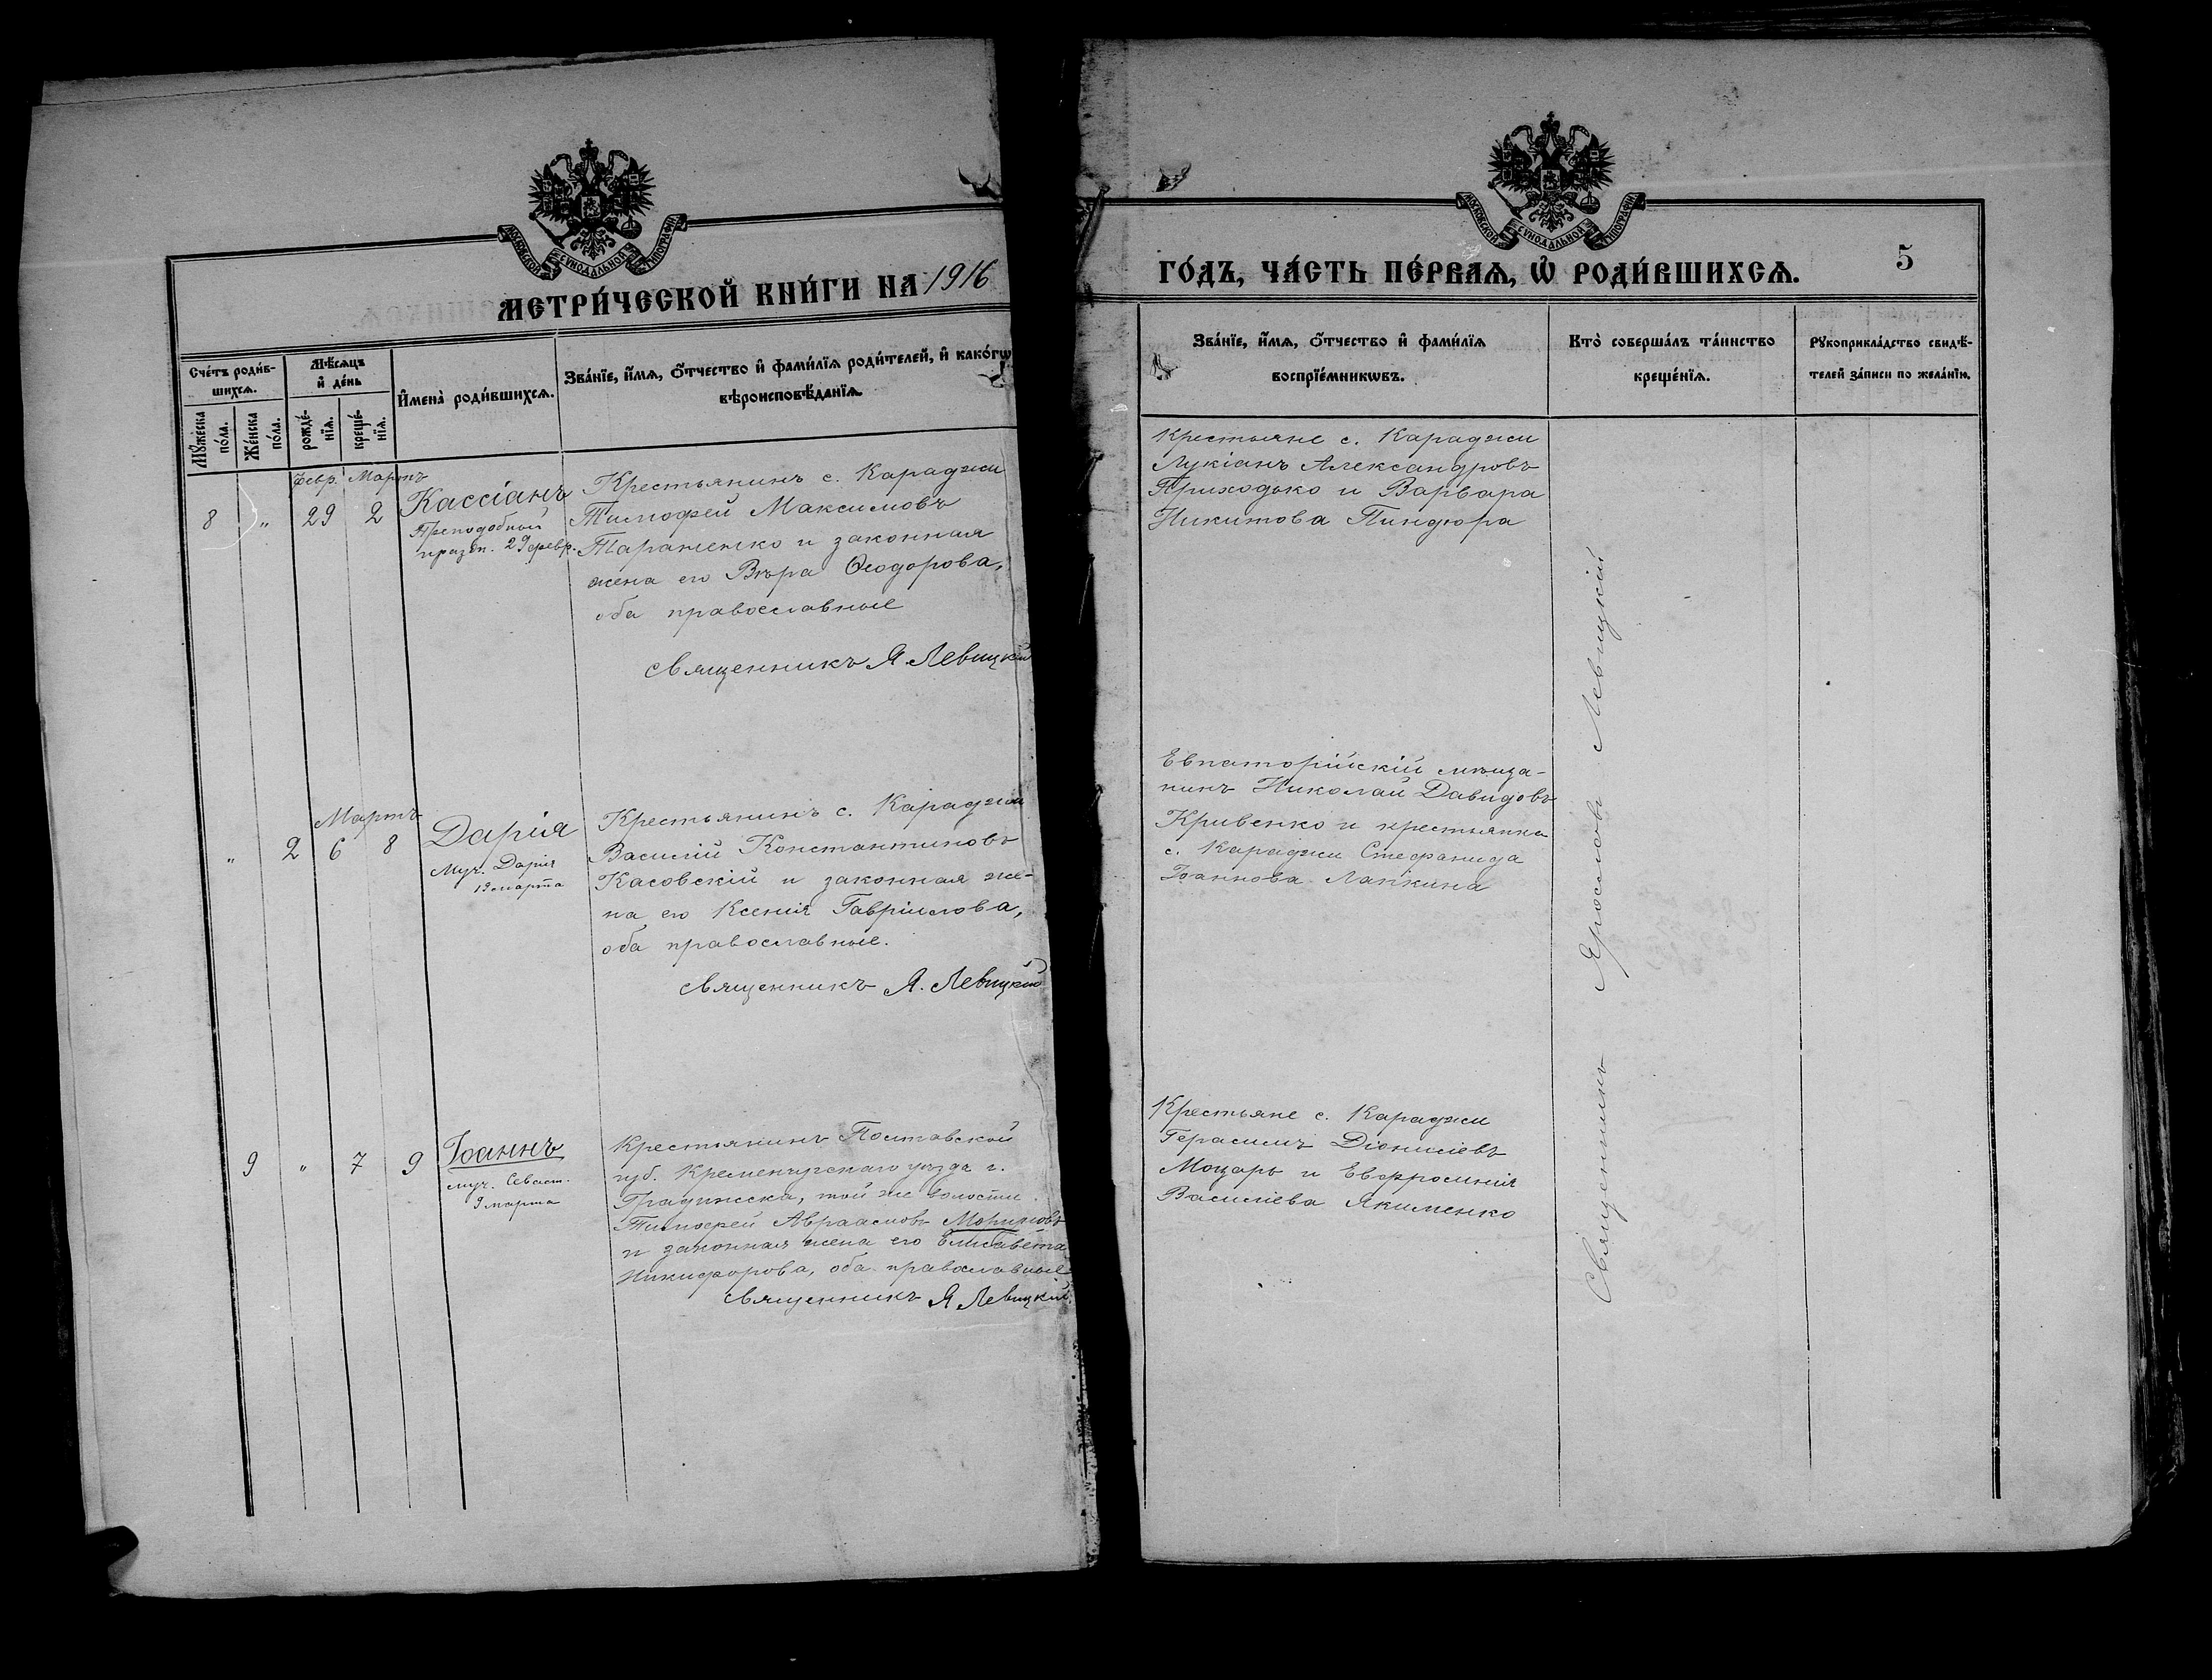 МОСКОВСКОЙ СУНОДАЛЬНОЙ ТИПОГРАФІИ
МЕТРИ́ЧЕСКОЙ КНИ́ГИ НА 1916
Сче́тъ роди́в-
шихсѧ.
Мꙋ́жеска
по́ла.
Же́нска
по́ла.
Мѣ́сѧцъ
и҆ де́нь
рожде́-
нїѧ.
креще́-
нїѧ.
И҆мена̀ роди́вшихсѧ.
Зва́нїе, и҆́мѧ, ѻ҆́тчество и҆ фами́лїѧ роди́телей, и҆ како́гѡ
вѣроисповѣ́данїѧ.
Февр. Мартъ
8 „ 29 2
Кассіанъ
Преподобный
празн. 29 февр.
Крестьянинъ с. Караджи
Тимофей Максимовъ
Тараненко и законная
жена его Вѣра Ѳеодорова,
оба православные
Священникъ Я. Левицкій
Мартъ
„ 2 6 8
Дарія
Муч. Дарія
19 марта
Крестьянинъ с. Караджи
Василій Константиновъ
Касовскій и законная же-
на его Ксенія Гавріилова,
оба православные.
Священникъ Я. Левицкій
9 „ 7 9
Іоаннъ
муч. Севаст.
9 марта
Крестьянинъ Полтавской
губ. Кременчугскаго уѣзда г.
Градижска, той же волости
Тимофей Авраамовъ
и законная жена его Елисавета
Никифорова, оба православные
Священникъ Я Левицкій.
МОСКОВСКОЙ СУНОДАЛЬНОЙ ТИПОГРАФІИ
ГО́ДЪ, ЧА́СТЬ ПЕ́РВАѦ, Ѡ҆ РОДИ́ВШИХСѦ.
5
Зва́нїе, и҆́мѧ, ѻ҆́тчество и҆ фами́лїѧ
воспрїе́мникѡвъ.
Кто̀ соверша́лъ та́инство
креще́нїѧ.
Рꙋкоприкла́дство свидѣ́-
телей за́писи по жела́нїю.
Крестьяне с. Караджи
Лукіанъ Александровъ
Приходько и Варвара
Никитова Пиндюра
Евпаторійскій мѣща-
нинъ Николай Давидовъ
Кривенко и крестьянка
с. Караджи Стефанида
Іоаннова Лапкина
Крестьяне с. Караджи
Герасимъ Діонисіевъ
Моцарь и Евфросинія
Василіева Якименко
Священникъ Ярославъ Левицкій